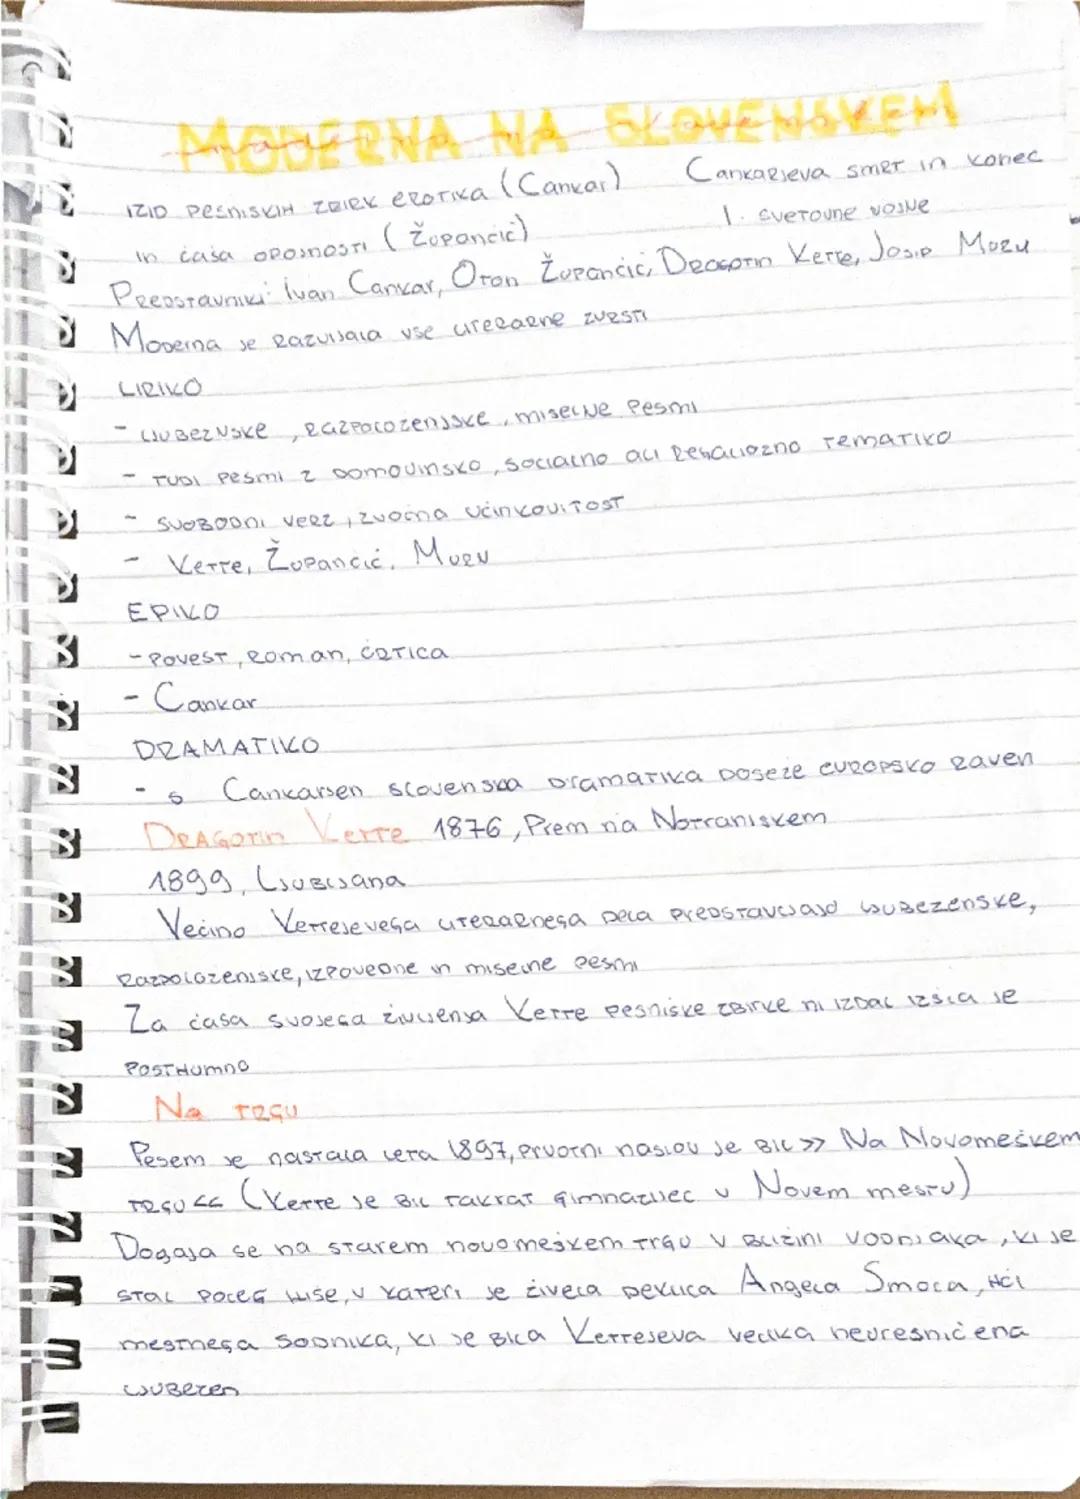 MODERNA NA SLOVENSKEM
IZID PESNISKIH ZBIRK EROTIKA (Cankar) Cankarjeva smrt in konec
in čaša opojnosti (Župančič) 1. svetovne vojne
Predstavniki: Ivan Cankar, Oton Župančič, Dragotin Kette, Josip Murn
Moderna je razvijala vse literarne zvrsti
LIRIKO
- ljubezNske, razpoloženjske, miselne pesmi
- TUDI pesmi z domovinsko, socialno ali religiozno tematiko
- svobodni verz, zvočna učinkovitost
- Kette, Župančič, Murn
EPIKO
- povest, roman, črtica
- Cankar
DRAMATIKO
- s Cankarjem slovenska dramatika doseže evropsko raven
Dragotin Kette 1876, Prem na Notranjskem
1899, Ljubljana
Večino Kettejevega literarnega dela predstavljajo ljubezenske,
razpoloženjske, izpovedne in miselne pesmi
Za časa svojega življenja Kette pesniške zbirke ni izdal izšla je
POSTHUMNO
Na trgu
Pesem je nastala leta 1897, prvotni naslov je bil >> Na Novomeškem
trgu << (Kette je bil takrat gimnazijec v Novem mestu)
Dogaja se na starem novomeškem trgu v bližini vodnjaka, ki je
stal poleg hiše, v kateri je živela deklica Angela Smola, hči
mestnega sodnika, ki je bila Ketejeva velika neuresničena
ljubezen